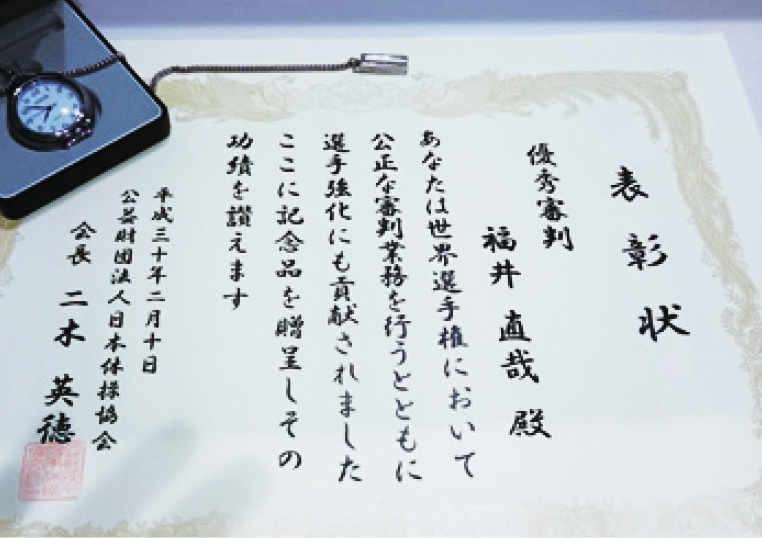 表彰状
優秀審判
福井直哉殿
あなたは世界選手権において
公正な審判業務を行うとともに
選手強化にも貢献されました
ここに記念品を贈呈しその
功績を讃えます
平成三十年二月十日
公益財団法人日本体操協会
会長 二木英徳